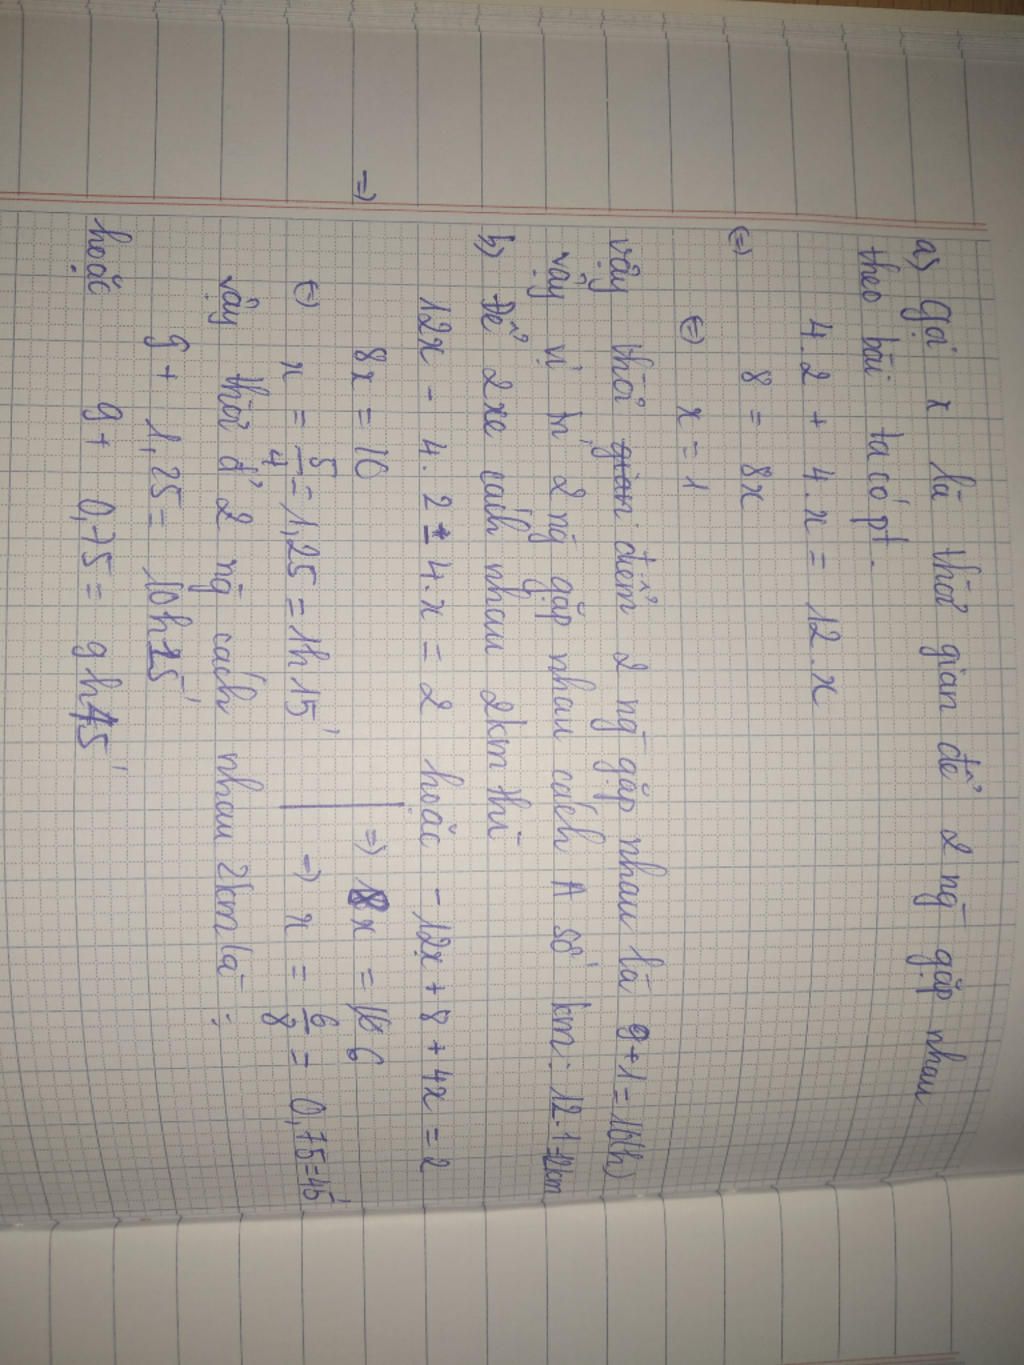 a) Gọi x là thời gian để 2 ng gặp nhau
theo bài ta có pt.
4.2 + 4.x = 12.x
(=) 8 = 8x
(=) x = 1
vậy thời điểm 2 ng gặp nhau là 9+1=10(h)
vậy vị trí 2 ng gặp nhau cách A số km: 12.1=12km
b) Để 2 xe cách nhau 2km thì
12x - 4.2 - 4.x = 2 hoặc -12x + 8 + 4x = 2
=) 8x = 10 => 8x = 6
(=) x = 5/4 = 1,25 = 1h15' => x = 6/8 = 0,75=45'
vậy thời đ' 2 ng cách nhau 2km là:
9+ 1,25= 10h15'
hoặc 9+ 0,75= 9h45'